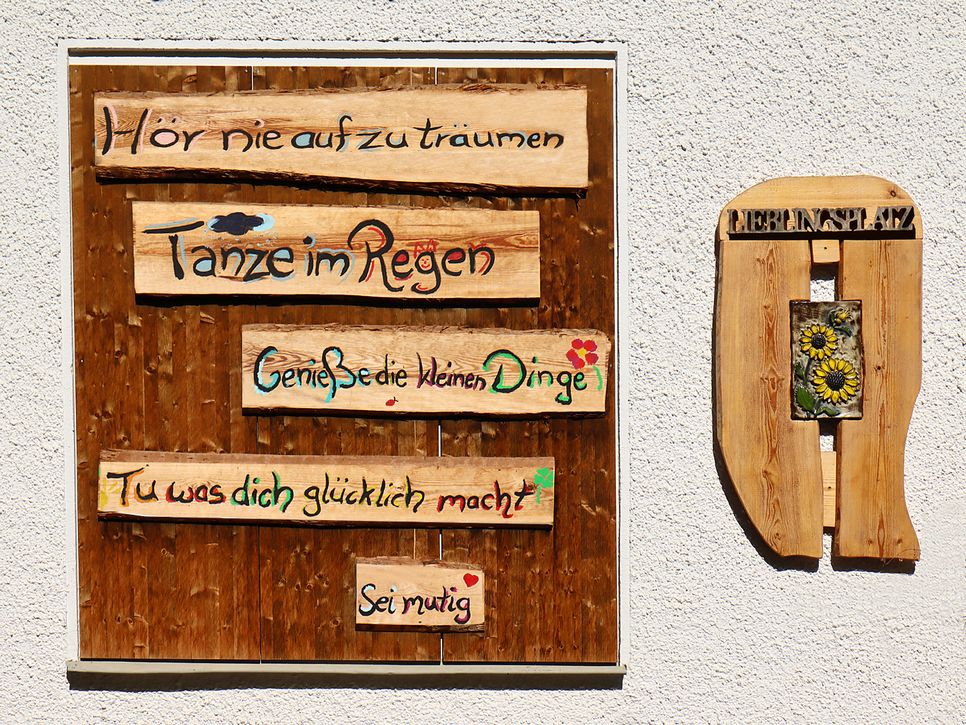 Hör nie auf zu träumen
Tanze im Regen
Genieße die kleinen Dinge
Tu was dich glücklich macht
Sei mutig
LIEBLINGSPLATZ